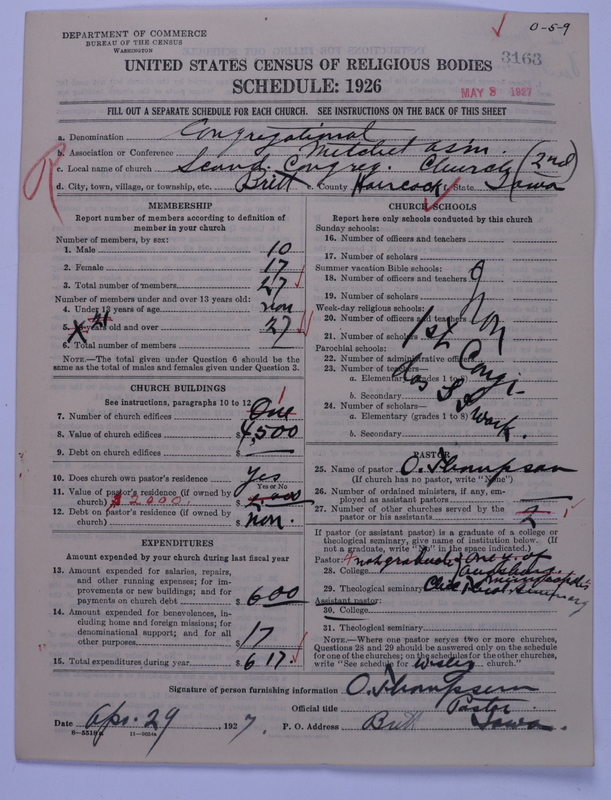 DEPARTMENT OF COMMERCE
BUREAU OF THE CENSUS
WASHINGTON
0-5-9
3163
UNITED STATES CENSUS OF RELIGIOUS BODIES
SCHEDULE: 1926
MAY 3 1927
FILL OUT A SEPARATE SCHEDULE FOR EACH CHURCH. SEE INSTRUCTIONS ON THE BACK OF THIS SHEET
a. Denomination Congregational
b. Association or Conference Mitchel assn.
c. Local name of church Scand. Congreg. Church (2nd)
d. City, town, village, or township, etc. Britt e. County Hancock f. State Iowa
R
MEMBERSHIP
Report number of members according to definition of
member in your church
Number of members, by sex:
1. Male 10
2. Female 17
3. Total number of members 27
Number of members under and over 13 years old:
4. Under 13 years of age non
5. years old and over 27
21
6. Total number of members
NOTE.—The total given under Question 6 should be the
same as the total of males and females given under Question 3.
CHURCH BUILDINGS
See instructions, paragraphs 10 to 12
7. Number of church edifices One
1
8. Value of church edifices $4,500
9. Debt on church edifices $
10. Does church own pastor's residence yes
Yes or No
11. Value of pastor's residence (if owned by
church) $2000. $
12. Debt on pastor's residence (if owned by
church) $ non.
EXPENDITURES
Amount expended by your church during last fiscal year
13. Amount expended for salaries, repairs,
and other running expenses; for im-
provements or new buildings; and for
payments on church debt $600
14. Amount expended for benevolences, in-
cluding home and foreign missions; for
denominational support; and for all
other purposes $17
15. Total expenditures during year $617.
CHURCH SCHOOLS
Report here only schools conducted by this church
Sunday schools:
16. Number of officers and teachers
17. Number of scholars
Summer vacation Bible schools:
18. Number of officers and teachers
19. Number of scholars
Week-day religious schools:
20. Number of officers and teachers
21. Number of scholars
Parochial schools:
22. Number of administrative officers
23. Number of teachers—
a. Elementary (grades 1 to 8)
b. Secondary
24. Number of scholars—
a. Elementary (grades 1 to 8)
b. Secondary
1st Congi-
has S S work.
PASTOR
25. Name of pastor O. Thompson
(If church has no pastor, write "None")
26. Number of ordained ministers, if any, em-
ployed as assistant pastors
27. Number of other churches served by the
pastor or his assistants 1
If pastor (or assistant pastor) is a graduate of a college or
theological seminary, give name of institution below. (If
not a graduate, write "No" in the space indicated.)
Pastor: not graduate one y. of
28. College
29. Theological seminary Chic Theol Seminary
Assistant pastor:
30. College
31. Theological seminary
NOTE.—Where one pastor serves two or more churches,
Questions 28 and 29 should be answered only on the schedule
for one of the churches; on the schedules for the other churches,
write "See schedule for Wesley church."
Signature of person furnishing information O. Thompson
Official title Pastor
Date Apr. 29, 1927. P. O. Address Britt Iowa.
8—5518a 11—9024a